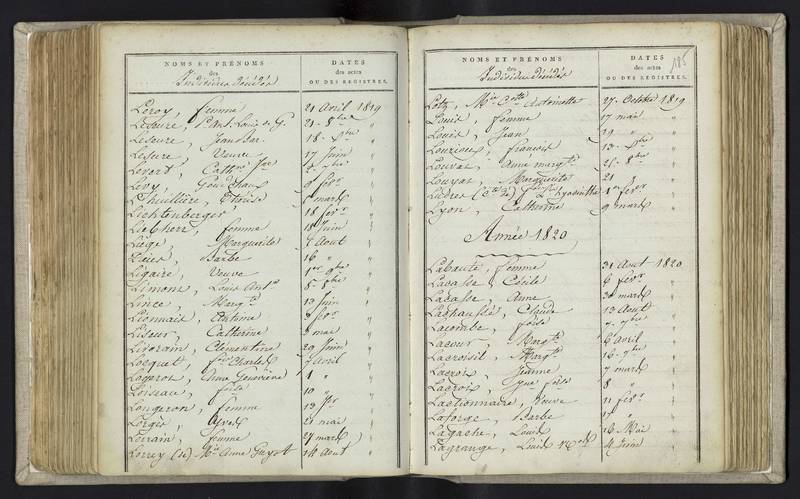 NOMS ET PRÉNOMS
des
Individus décédés
DATES
des actes
OU DES REGISTRES.
Leroy, femme 21 Avril 1819
Leseure, Pre Ant. Louis de G. 21 - 8bre "
Leseure, Jean Bar. 18 - "
Lesure Veuve 17 Juin "
Levert, Cath.
Levy, 9 fevr "
Lhuillière, Thérèse 6 mars "
Lichtenberger 18 fevr "
Liebherr, femme 18 Juin "
Liège, Marguerite 4 Aout "
Barbe 16 " "
Ligaire, Veuve 1er 9bre "
Limon, Louis Ant. "
Lince, Marg. 13 Juin "
Lionnais, Antime 8 fevr "
Liseur, Catherine 2 mai "
Livorain, Clementine 29 Juin "
Locquet, Charles 7 avril "
Logerot, Anne Geneviève 1 " "
Loiseau, fils 10 " "
Longeron, femme 13 "
Lorgés, 21 mai "
Lorrain, femme 27 mars "
Lorrey (de) Mie Anne Guyot 14 Aout "
NOMS ET PRÉNOMS
des
Individus décédés
DATES
des actes
OU DES REGISTRES.
185
Lotz, Mie Cath Antoinette 27 Octobre 1819
Louis, femme 17 mai "
Louis, Jean 19 " "
Louzioux, francois 13 - "
Louvat, Anne margte 21 - 8bre "
Louyat, Marguerite 21 "
Ludres (Cte de) Hyacinthe 1er fevr "
Lyon, Catherine 9 mars "
Année 1820
Labauté, femme 31 Aout 1820
Lacasse Cécile 6 fevr "
Lacasse, Anne 30 mars "
Lachaussée, Claude 13 Aout "
Lacombe, fils 7 "
Lacour, Margte 6 avril "
Lacroisil, Margte 16 - 9bre "
Lacroix, Jeanne 7 mars "
Lacroix, fils 8 " "
Lactionnaire, Veuve 11 fevr "
Laforge, Barbe "
Lagache, Louis 16 Mai "
Lagrange, Louis 4 Juin "